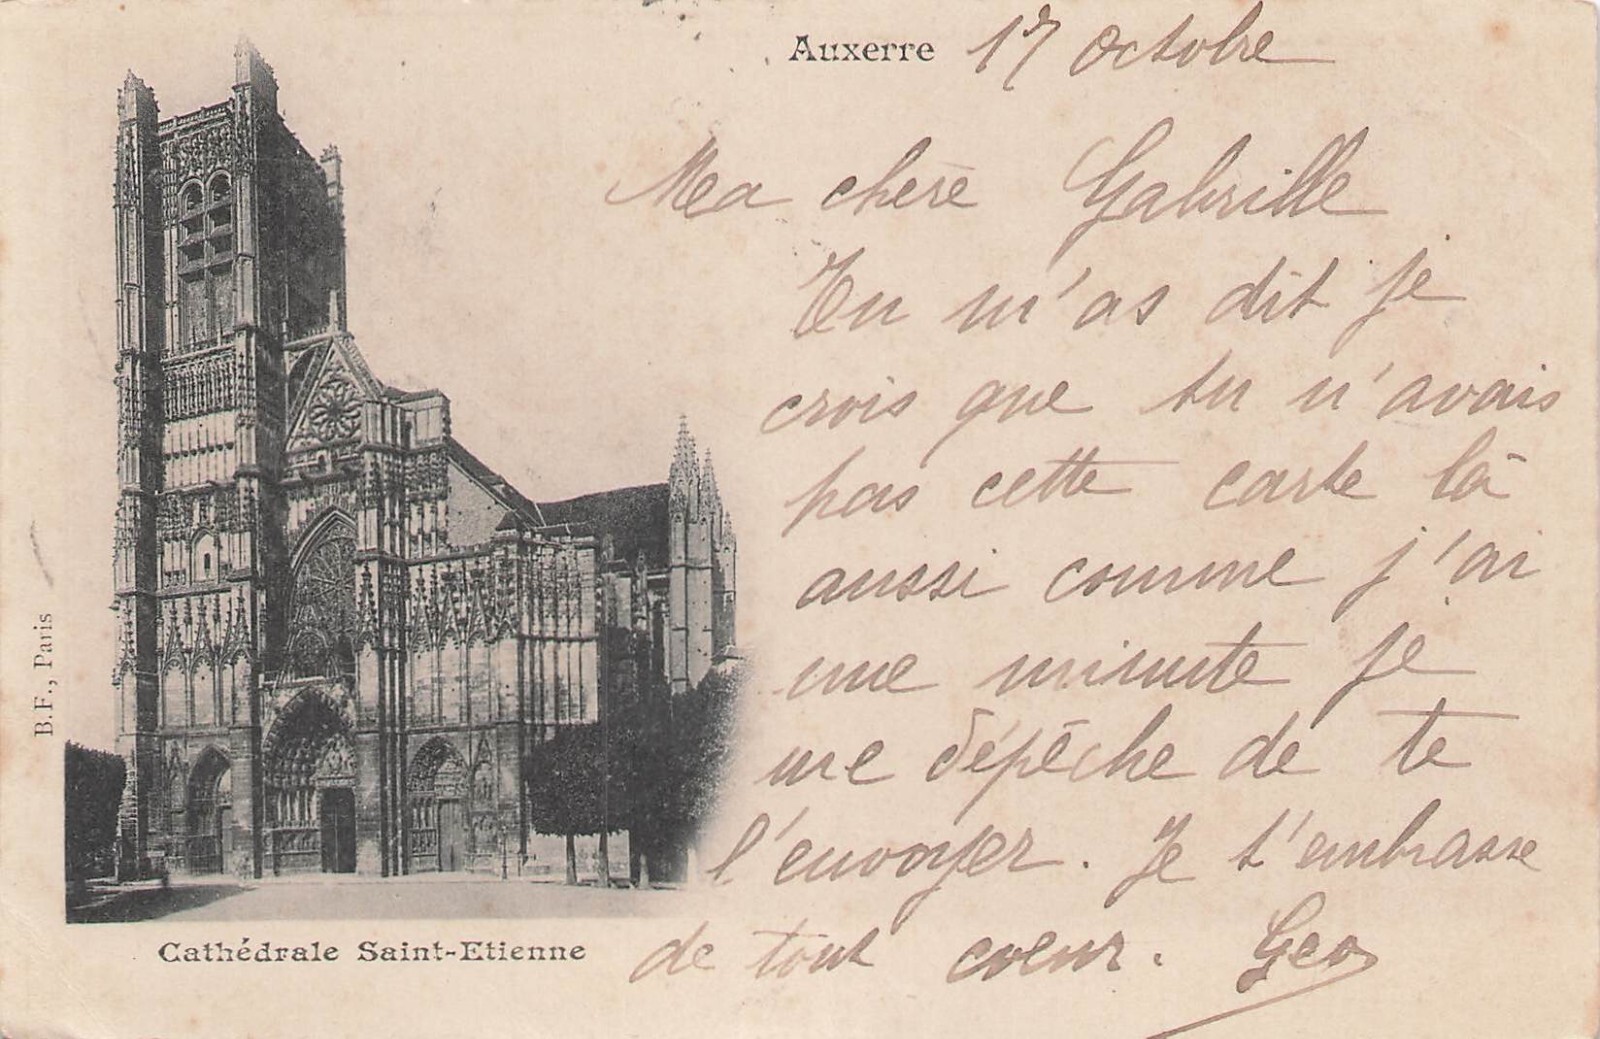 Auxerre 17 octobre
Ma chère Gabrille
Tu m'as dit je
crois que tu n'avais
pas cette carte là
aussi comme j'ai
une minute je
me dépêche de te
l'envoyer. Je t'embrasse
de tout coeur. Geo
Cathédrale Saint-Etienne
B.F., Paris